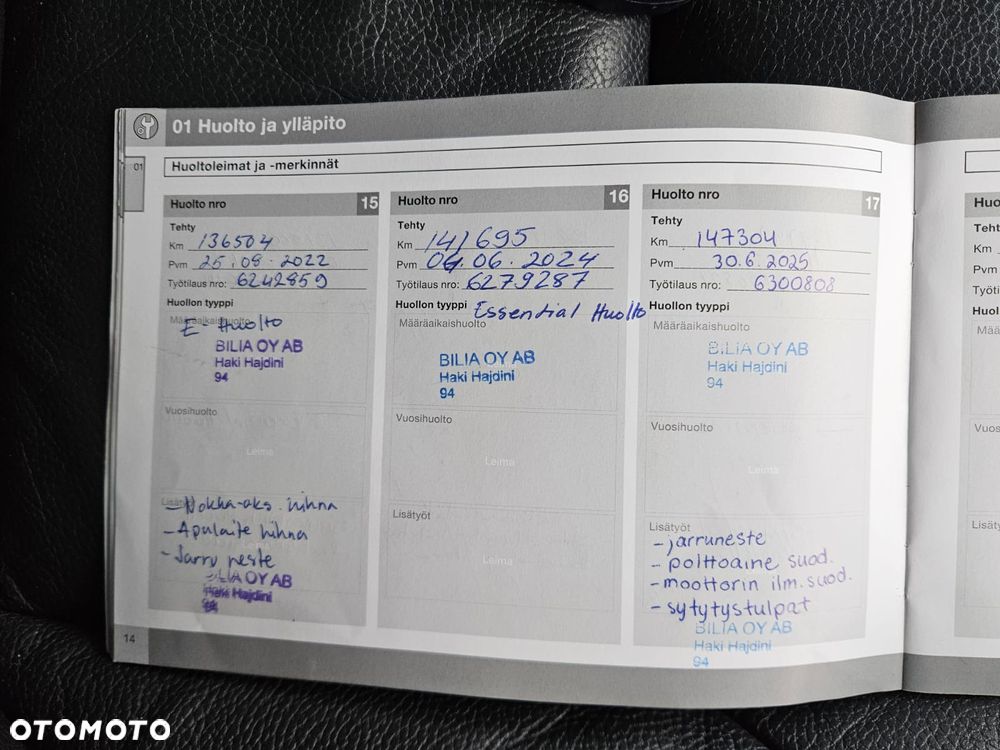 01 Huolto ja ylläpito
01
Huoltoleimat ja -merkinnät
Huolto nro 15
Tehty
Km 136504
Pvm 25.08.2022
Työtilaus nro: 6242859
Huollon tyyppi
Määräaikaishuolto
E-Huolto
BILIA OY AB
Haki Hajdini
94
Vuosihuolto
Leima
Lisätyöt
- Nokka-aks. hihna
- Apulaite hihna
- Jarru neste
BILIA OY AB
Haki Hajdini
94
Huolto nro 16
Tehty
Km 141695
Pvm 04.06.2024
Työtilaus nro: 6279287
Huollon tyyppi Essential Huolto
Määräaikaishuolto
BILIA OY AB
Haki Hajdini
94
Vuosihuolto
Leima
Lisätyöt
Leima
Huolto nro 17
Tehty
Km 147304
Pvm 30.6.2025
Työtilaus nro: 6300808
Huollon tyyppi
Määräaikaishuolto
BILIA OY AB
Haki Hajdini
94
Vuosihuolto
Leima
Lisätyöt
- jarruneste
- polttoaine suod.
- moottorin ilm.suod.
- sytytystulpat
BILIA OY AB
Haki Hajdini
94
14
OTOMOTO